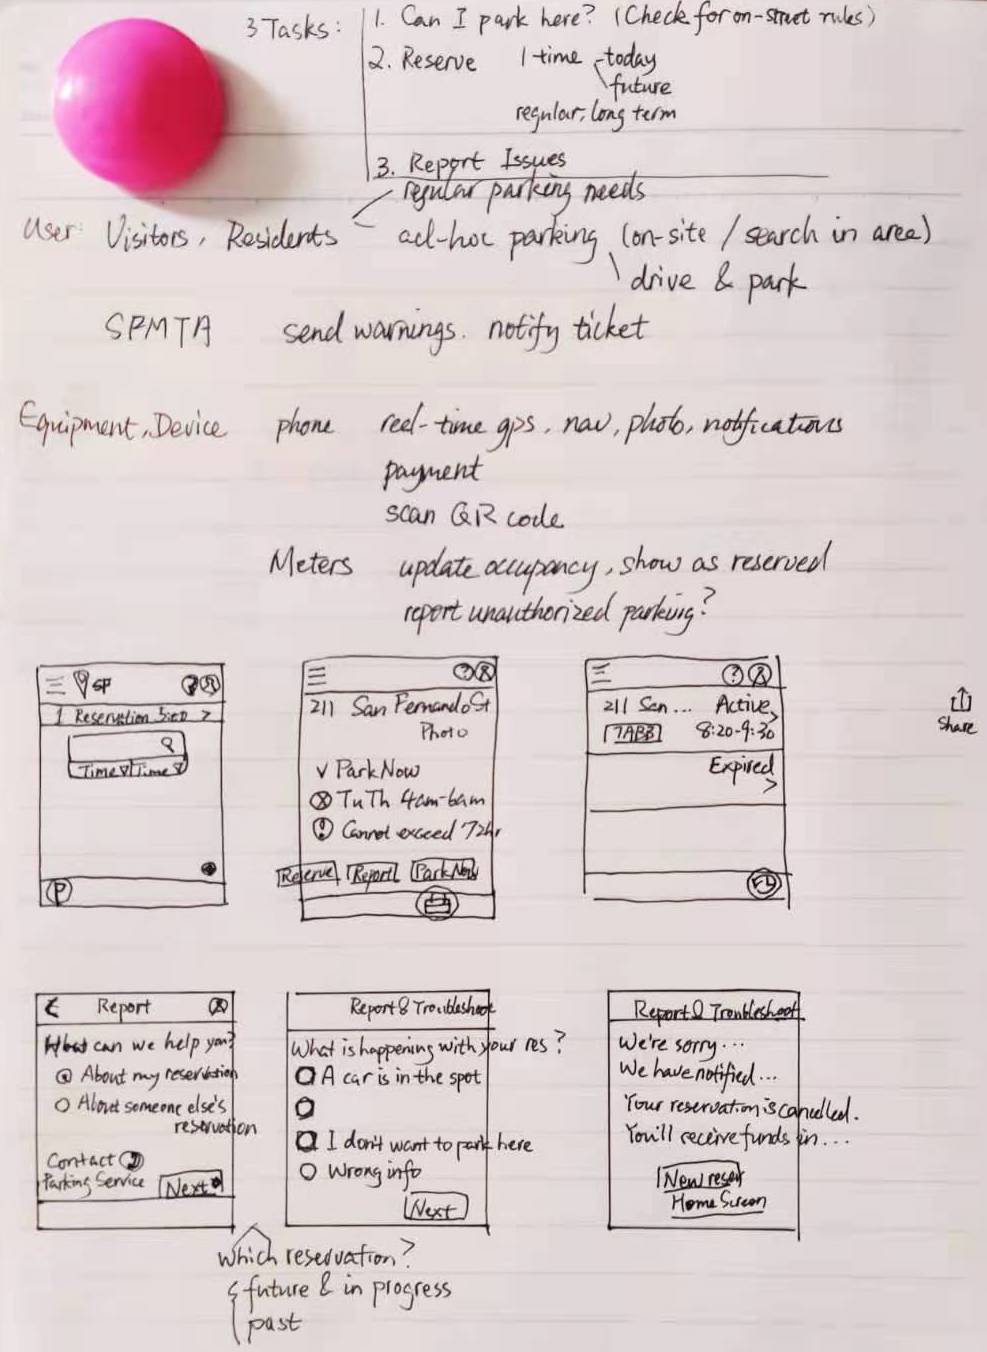 3 Tasks:
1. Can I park here? (Check for on-street rules)
2. Reserve 1 time today
future
regular, long term
3. Report Issues
regular parking needs
User: Visitors, Residents ad-hoc parking (on-site / search in area)
drive & park
SFMTA send warnings. notify ticket
Equipment, Device phone reel-time gps, nav, photo, notifications
payment
scan QR code
Meters update occupancy, show as reserved
report unauthorized parking?
SP ?
1 Reservation >
Time Time
P
?
211 San Fernando St
Photo
V Park Now
TuTh 4am-6am
! Cannot exceed 72hr
Reserve Report Park Now
?
211 San ... Active >
7ABB 8:20-9:30
Expired >
Share
Report
What can we help you?
About my reservation
About someone else's
reservation
Contact
Parking Service Next
Report & Troubleshoot
What is happening with your res?
A car is in the spot
I don't want to park here
Wrong info
Next
Report & Troubleshoot
We're sorry...
We have notified...
Your reservation is cancelled.
You'll receive funds in...
New reser
Home Screen
Which reservation?
future & in progress
past